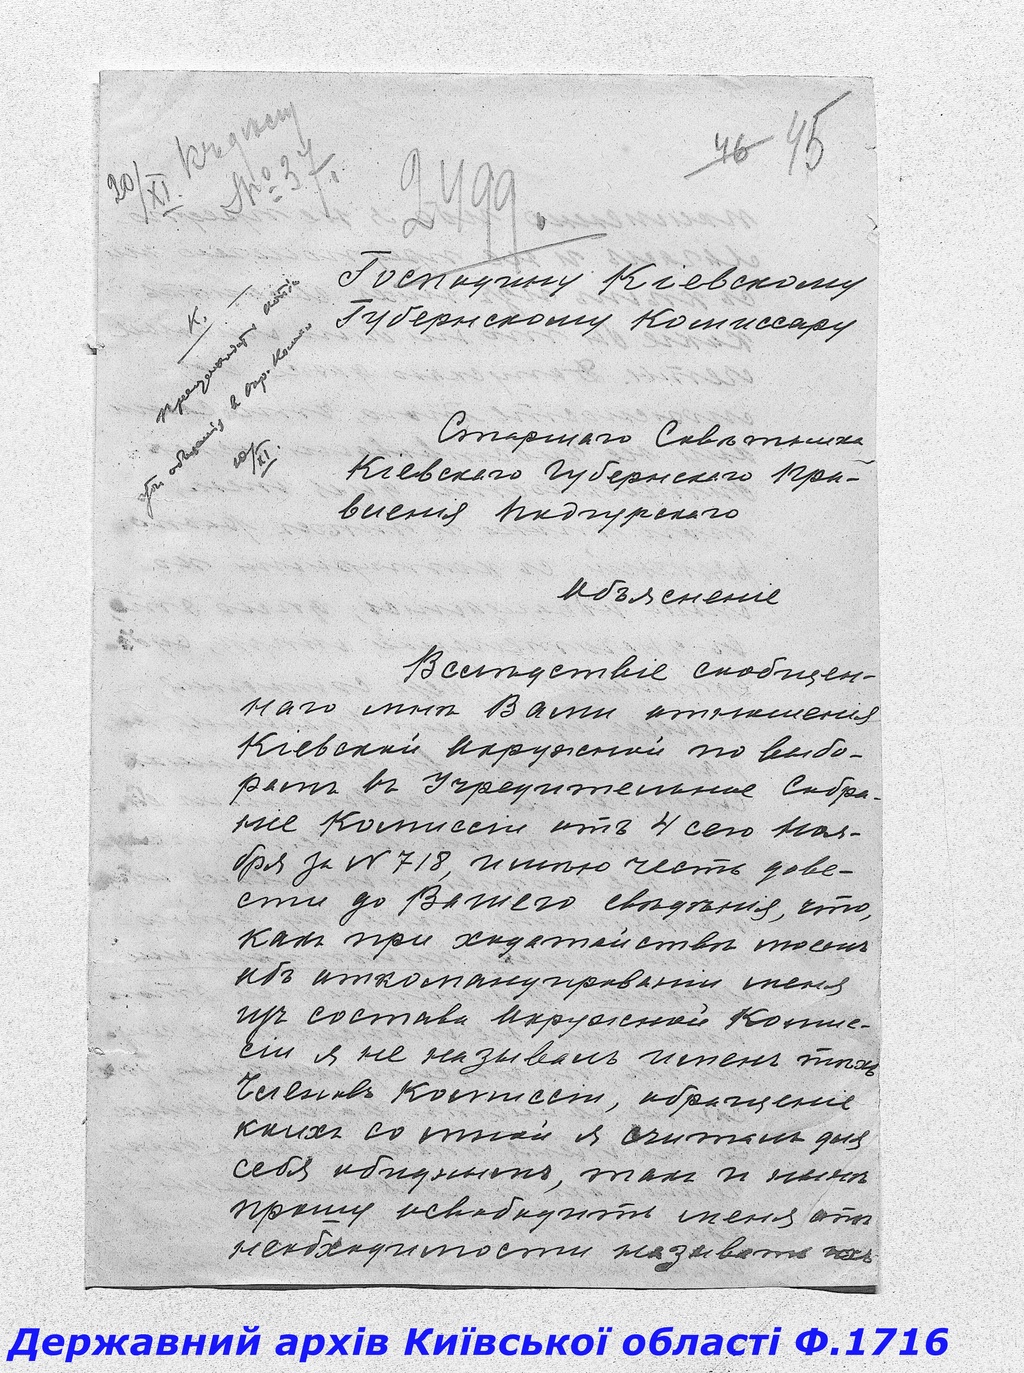 20/XI.
№ 37.
46 45
2499.
К.
Препроводить копію
10/XI.
Господину Кіевскому
Губернскому Комиссару
Старшаго Совѣтника
Кіевскаго Губернскаго Пра-
вленія Подгурскаго
Объясненіе
Вслѣдствіе сообщен-
наго мнѣ Вами отношенія
Кіевской Окружной по выбо-
рамъ въ Учредительное Собра-
ніе Комиссіи отъ 4 сего Ноя-
бря за N 718, имѣю честь дове-
сти до Вашего свѣдѣнія, что,
какъ при ходатайствѣ моемъ
объ откомандированіи меня
изъ состава Окружной Комис-
сіи я не называлъ именъ тѣхъ
Членовъ Комиссіи, обращеніе
коихъ со мной я считалъ для
себя обиднымъ, такъ и нынѣ
прошу освободить меня отъ
необходимости называть ихъ
Державний архів Київської області Ф.1716